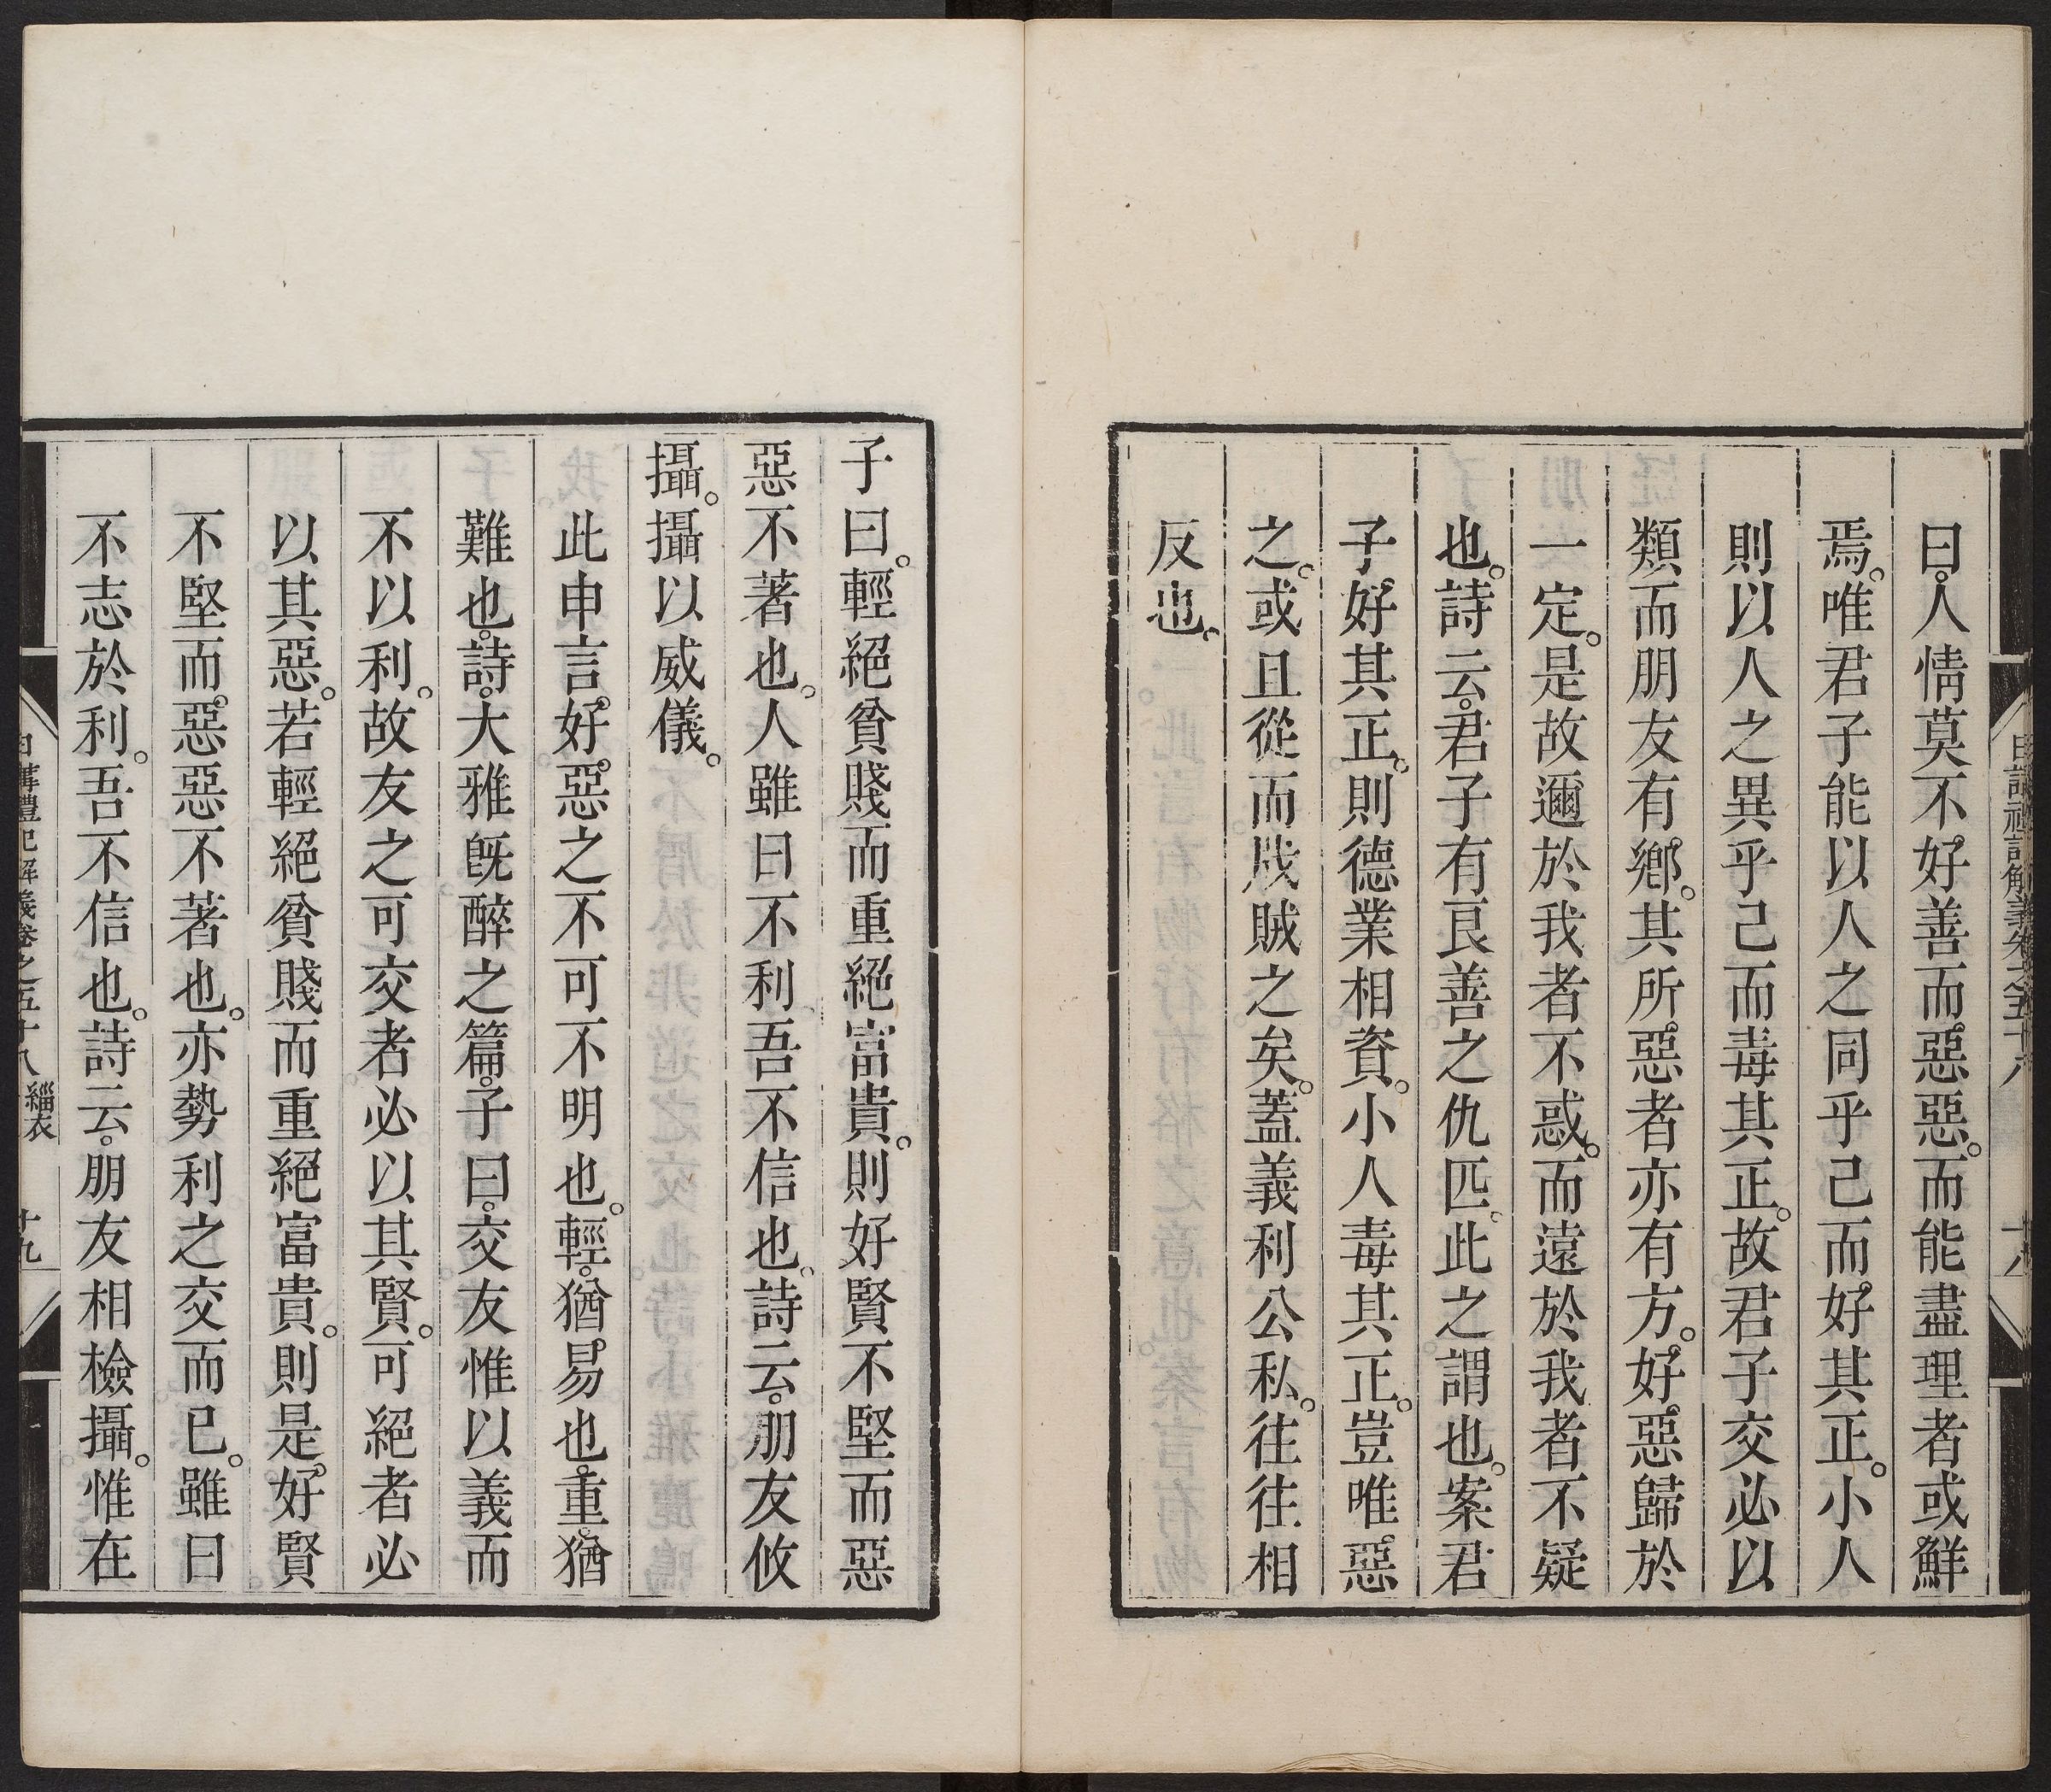 曰人情莫不好善而惡惡。而能盡理者或鮮
焉。唯君子能以人之同乎己而好其正。小人
則以人之異乎己而毒其正。故君子交必以
類而朋友有鄉。其所惡者亦有方。好惡歸於
一定。是故邇於我者不惑。而遠於我者不疑
也。詩云。君子有良善之仇匹。此之謂也。案君
子好其正。則德業相資。小人毒其正。豈唯惡
之。或且從而戕賊之矣。蓋義利公私。往往相
反也。
日講禮記解義卷之五十八
十八
子曰。輕絕貧賤而重絕富貴。則好賢不堅而惡
惡不著也。人雖曰不利吾不信也。詩云。朋友攸
攝。攝以威儀。
此申言。好惡之不可不明也。輕。猶易也。重。猶
難也。詩。大雅旣醉之篇。子曰。交友惟以義而
不以利。故友之可交者必以其賢。可絕者必
以其惡。若輕絕貧賤而重絕富貴。則是好賢
不堅而惡惡不著也。亦勢利之交而已。雖曰
不志於利。吾不信也。詩云。朋友相檢攝。惟在
日講禮記解義卷之五十八 緇衣
十九